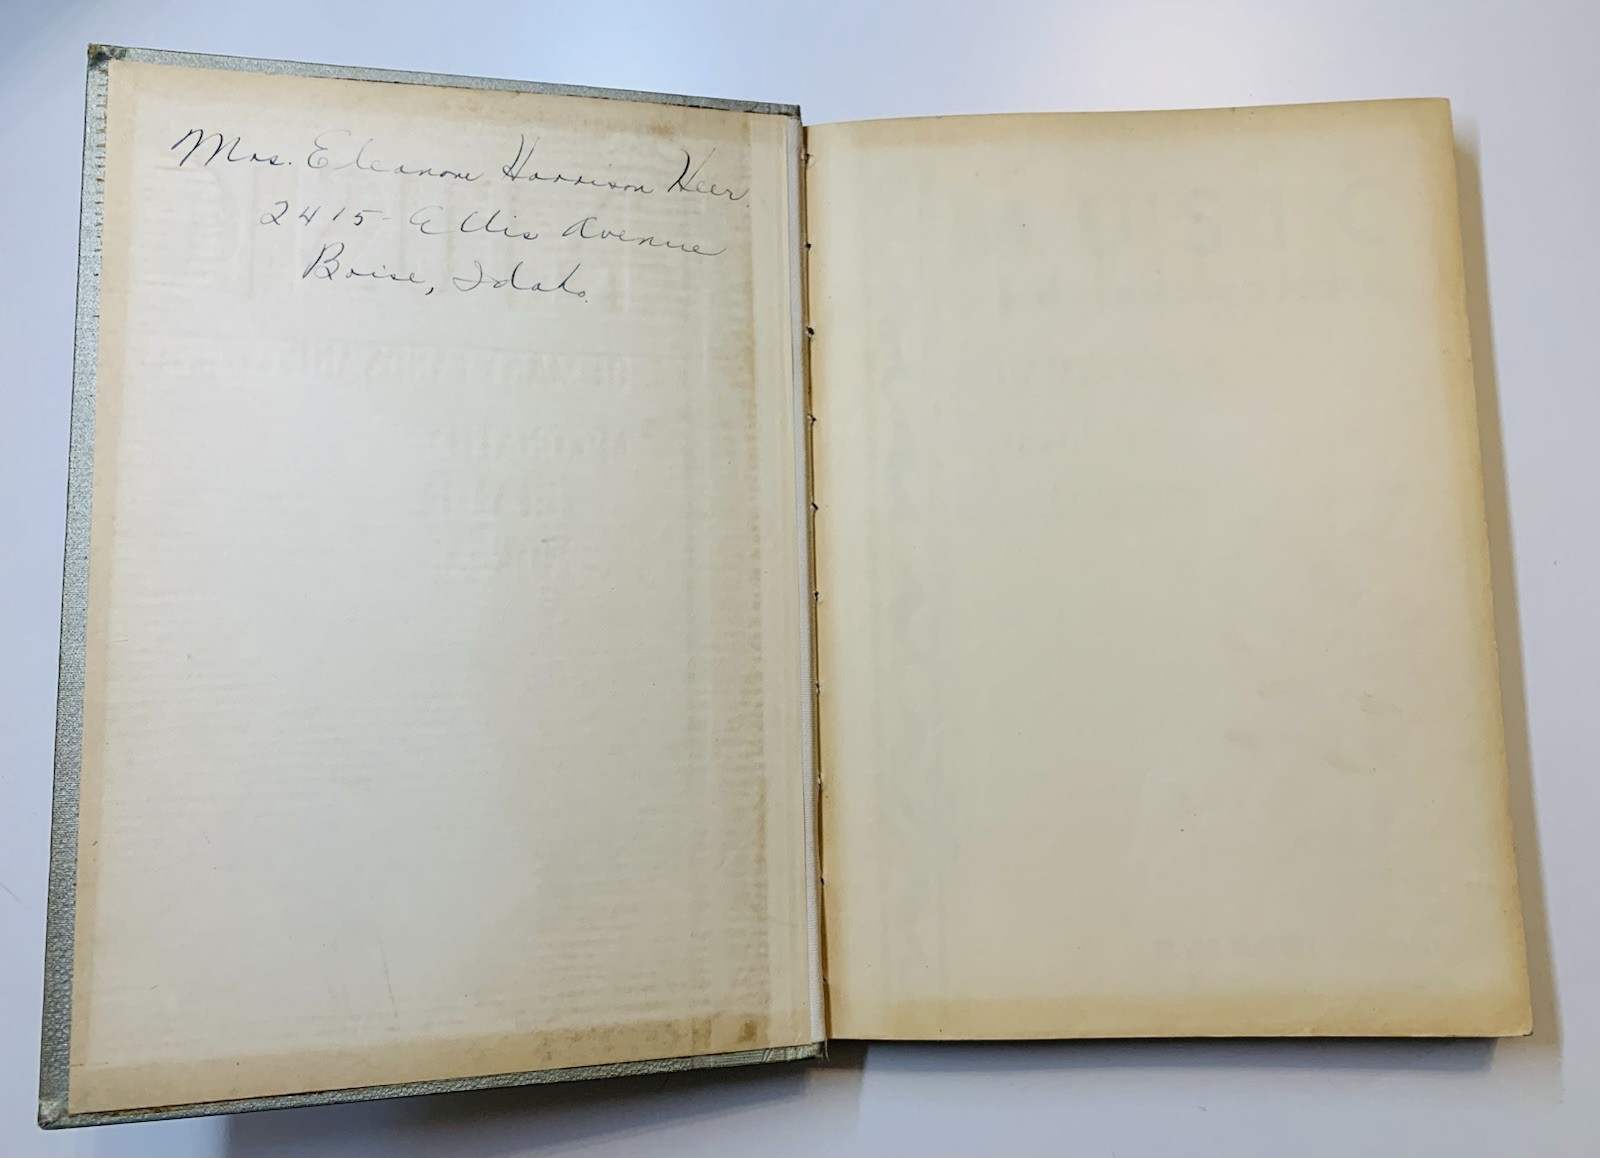 Mrs. Eleanore Harrison Heer.
2415 Ellis Avenue
Boise, Idaho.